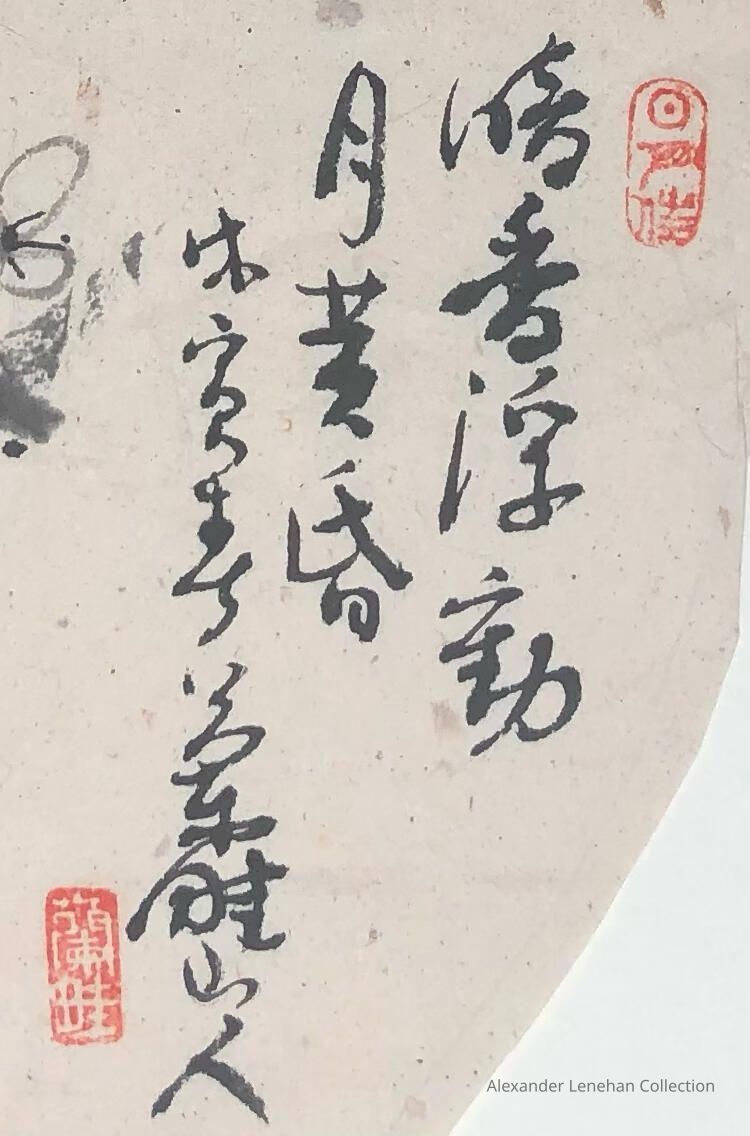 暗香浮動
月黄昏
戊寅春 畦山人
Alexander Lenehan Collection